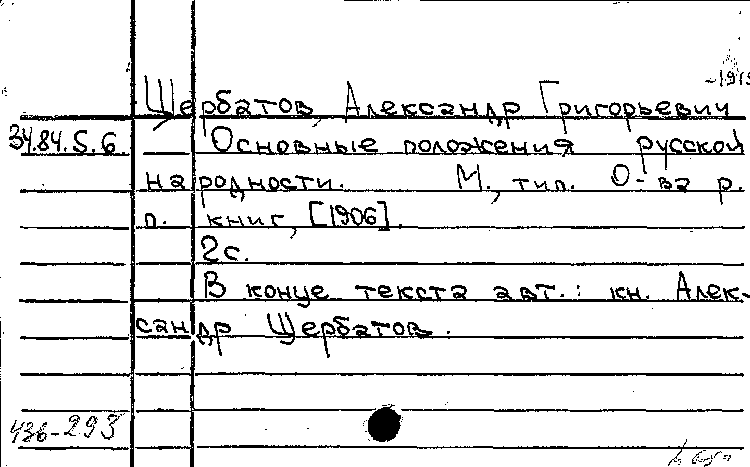 -1915
Щербатов, Александр Григорьевич
34.84.5.6 Основные положения русской
народности. М., тип. О-ва р.
п. книг, [1906].
2с.
В конце текста авт.: кн. Алек-
сандр Щербатов.
436-293